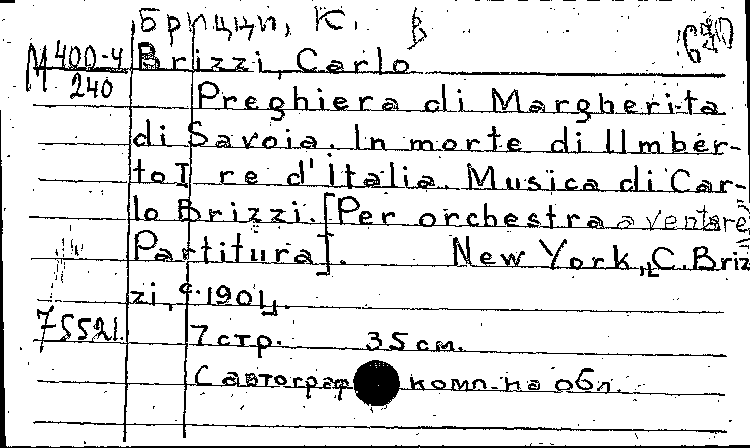 Брицци, К. В
М 400-4 Brizzi, Carlo
240 Preghiera di Margherita
di Savoia. In morte di Umber-
to I re d'Italia. Musica di Car-
lo Brizzi. [Per orchestra a ventare
Partitura]. New York, C. Briz
zi, c. 1901.
75521. 7 стр. 35 см.
С автограф комп. на обл.